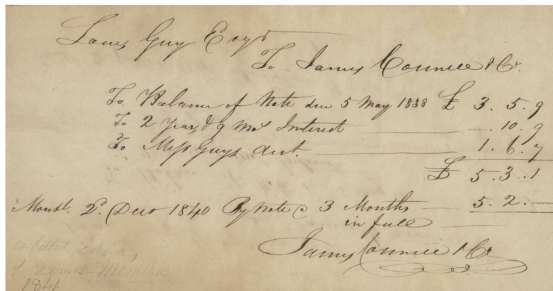 Louis Guy Esqr
To James Connell & Co.
To Balance of Note due 5 May 1838 £ 3. 5. 9
To 2 Years & 9 Mos Interest —. 10. 9
To Miss Guys Acct. 1. 6. 7
£ 5. 3. 1
Monl. 2d. Decr 1840 By Note @ 3 Months 5. 2. —
in full
James Connell & Co
1841